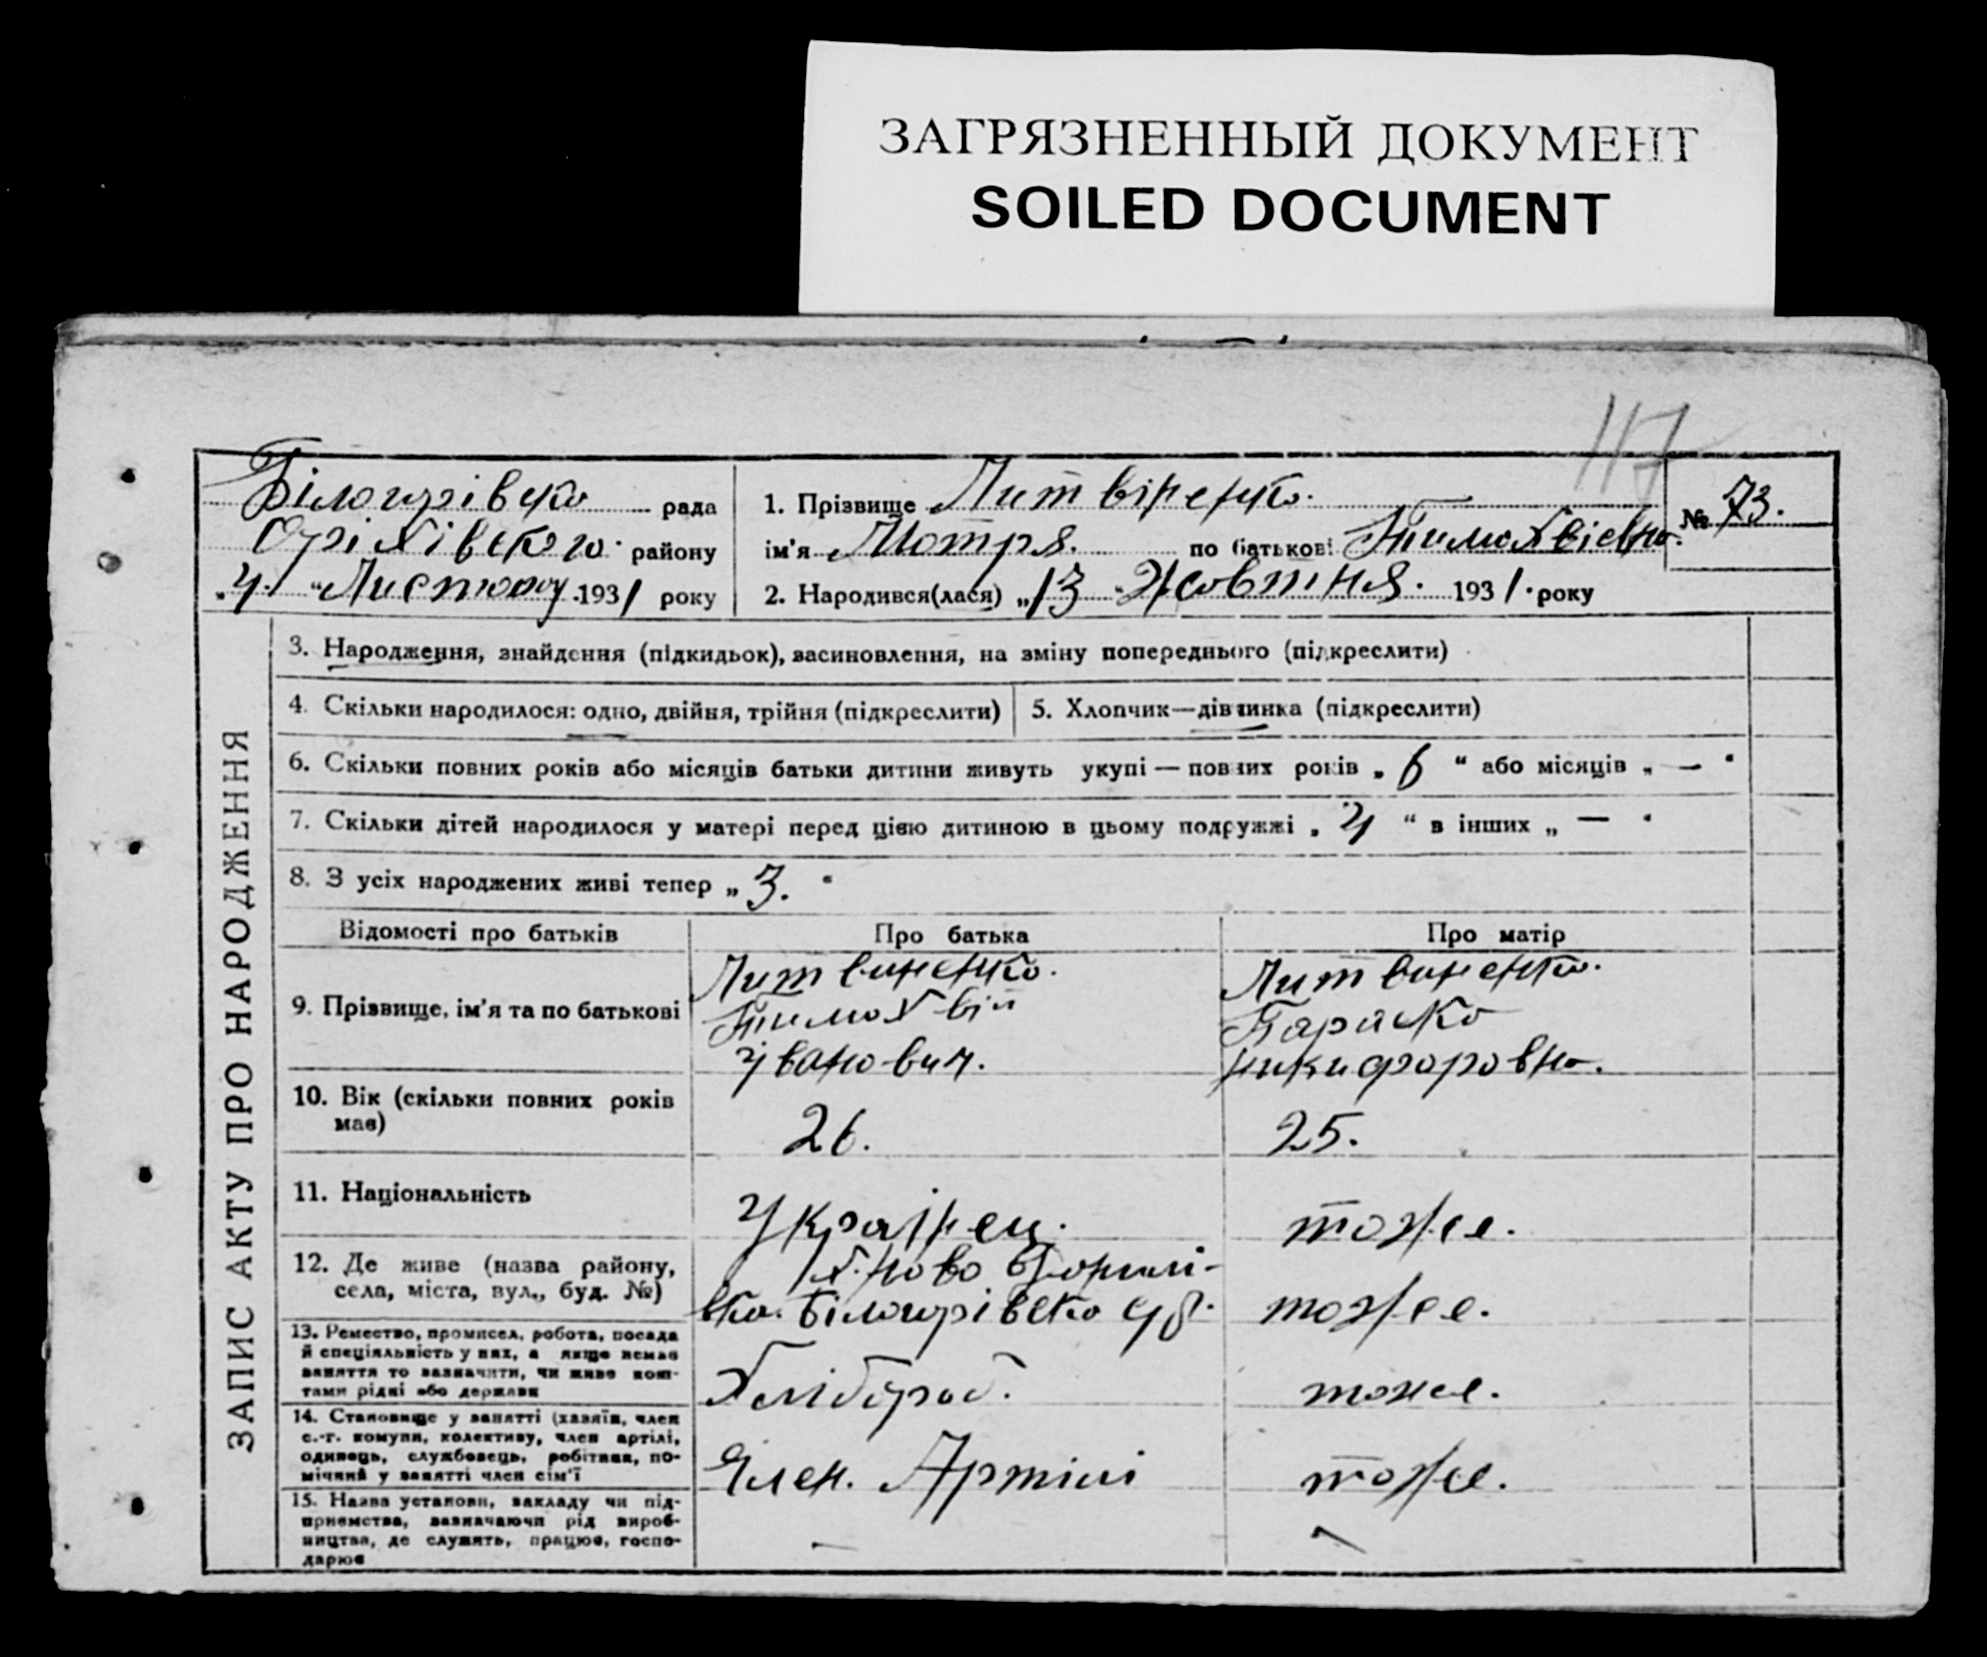 ЗАГРЯЗНЕННЫЙ ДОКУМЕНТ
SOILED DOCUMENT
117
Білогорівсько рада
Оріхівского району
„4“ Листопаду 1931 року
1. Прізвище Литвіненко.
ім'я Мотря. по батькові Тимохвієвна.
2. Народився(лася) „13“ Жовтня. 1931. року
№ 73.
ЗАПИС АКТУ ПРО НАРОДЖЕННЯ
3. Народження, знайдення (підкидьок), васиновлення, на зміну попереднього (підкреслити)
4. Скільки народилося: одно, двійня, трійня (підкреслити)
5. Хлопчик—дівчинка (підкреслити)
6. Скільки повних років або місяців батьки дитини живуть укупі — повних років „6“ або місяців „—“
7. Скільки дітей народилося у матері перед цією дитиною в цьому подружжі „4“ в інших „—“
8. З усіх народжених живі тепер „3.“
Відомості про батьків Про батька Про матір
9. Прізвище, ім'я та по батькові
Литвиненко.
Тимохвій
Іванович.
Литвиненко.
Параско
Никифоровна.
10. Вік (скільки повних років має)
26.
25.
11. Національність
Українец.
тоже.
12. Де живе (назва району,
села, міста, вул., буд. №)
х. Ново
вка. Білогорівсько
тоже.
13. Ремество, промисел, робота, посада
й спеціяльність у них, а якщо немає
заняття то зазначити, чи живе кош-
тами рідні або держави
Хлібороб.
тоже.
14. Становище у занятті (хазяїн, член
с.-г. комуни, колективу, член артілі,
одинець, службовець, робітник, по-
мічний у занятті член сім'ї
Член. Артілі
тоже.
15. Назва установи, закладу чи під-
приємства, зазначаючи рід вироб-
ництва, де служить, працює, госпо-
дарює
—
—